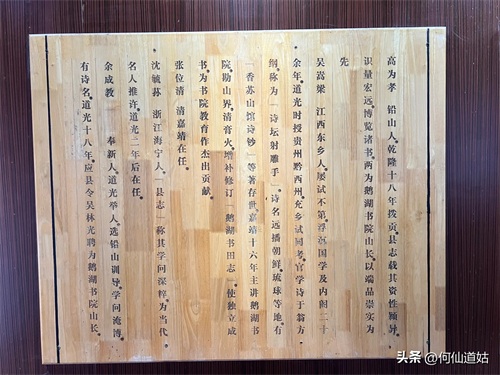 高为孝 铅山人。乾隆十八年拨贡。县志载其资性颖异。
识量宏远。博览诸书。两为鹅湖书院山长。以端品崇实为
先
吴嵩梁 江西东乡人。屡试不第。浮沉国学及内阁二十
余年。道光时授贵州黔西州。充乡试同考。官学诗于翁方
纲。称为「诗坛射雕手」。诗名远播朝鲜。琉球等地。有
「香苏山馆诗钞」等著存世。嘉靖十六年主讲鹅湖书
院。勘山界。清膏火。增补修订「鹅湖书田志」。使独立成
书。为书院教育作杰出贡献。
张位清 清嘉靖在任。
沈毓荪 浙江海宁人。「县志」称其学问深粹。为当代
名人推许。道光二年后在任。
余成教 奉新人。道光举人。选铅山训导。学问淹博。
有诗名。道光十八年。应县令吴林光聘为鹅湖书院山长。
头条 @何仙道姑